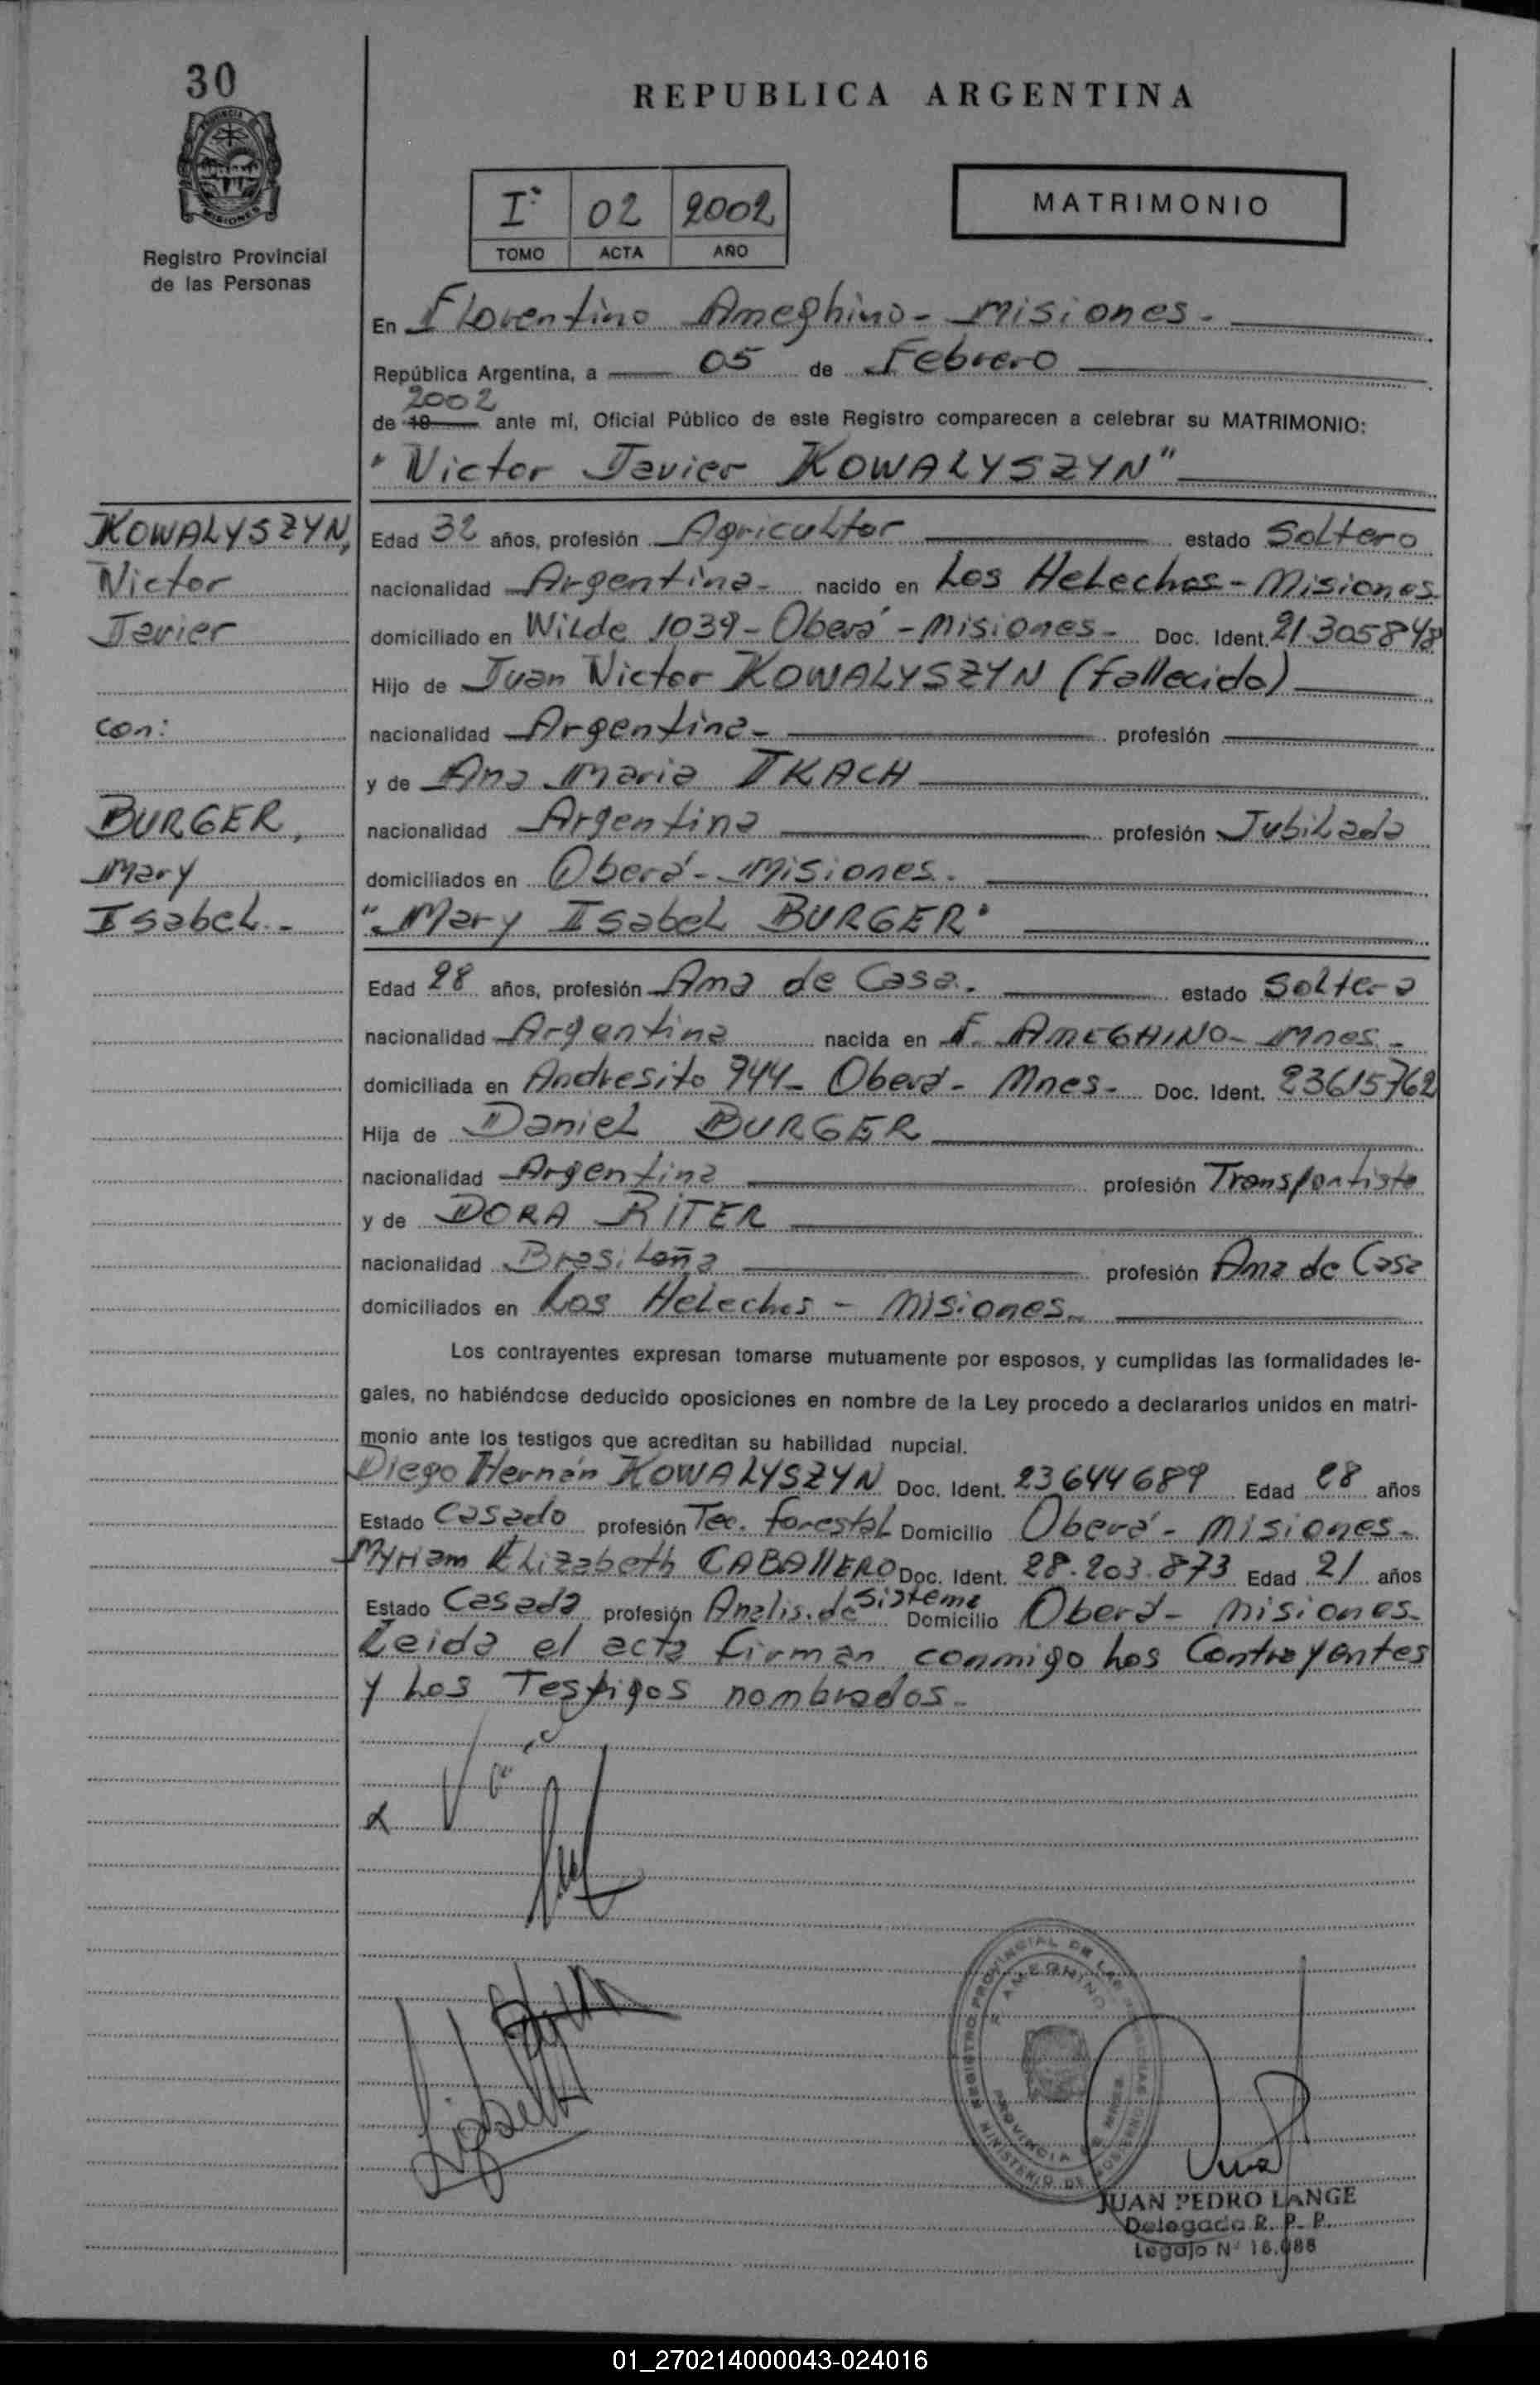 30
REPUBLICA ARGENTINA
MISIONES
Registro Provincial
de las Personas
I° 02 2002
TOMO ACTA AÑO
MATRIMONIO
En Florentino Ameghino - Misiones -
República Argentina, a 05 de Febrero
2002
de 19 ante mí, Oficial Público de este Registro comparecen a celebrar su MATRIMONIO:
"Victor Javier KOWALYSZYN"
KOWALYSZYN,
Victor
Javier
con:
BURGER,
Mary
Isabel.-
Edad 32 años, profesión Agricultor estado Soltero
nacionalidad Argentina- nacido en Los Helechos - Misiones
domiciliado en Wilde 1039 - Oberá - Misiones - Doc. Ident. 21.305848
Hijo de Juan Victor KOWALYSZYN (fallecido)
nacionalidad Argentina- profesión
y de Ana Maria TKACH
nacionalidad Argentina profesión Jubilada
domiciliados en Oberá - Misiones.
"Mary Isabel BURGER"
Edad 28 años, profesión Ama de Casa. estado Soltera
nacionalidad Argentina nacida en F. AMEGHINO - Mnes -
domiciliada en Andresito 744 - Oberá - Mnes - Doc. Ident. 23615762
Hija de Daniel BURGER
nacionalidad Argentina profesión Transportista
y de DORA RITER
nacionalidad Brasileña profesión Ama de Casa
domiciliados en Los Helechos - Misiones
Los contrayentes expresan tomarse mutuamente por esposos, y cumplidas las formalidades le-
gales, no habiéndose deducido oposiciones en nombre de la Ley procedo a declararlos unidos en matri-
monio ante los testigos que acreditan su habilidad nupcial.
Diego Hernán KOWALYSZYN Doc. Ident. 23644689 Edad 28 años
Estado Casado profesión Tec. forestal Domicilio Oberá - Misiones -
Myriam Elizabeth CABAllERO Doc. Ident. 28.203.873 Edad 21 años
Estado Casada profesión Analis. de Sistema Domicilio Oberá - Misiones -
Leida el acta firman conmigo los Contrayentes
y los Testigos nombrados -
REGISTRO PROVINCIAL DE LAS
AMEGHINO
PROVINCIA DE
MINISTERIO DE GOBIERNO
JUAN PEDRO LANGE
Delegado R. P. P.
Legajo N° 16.988
01_270214000043-024016